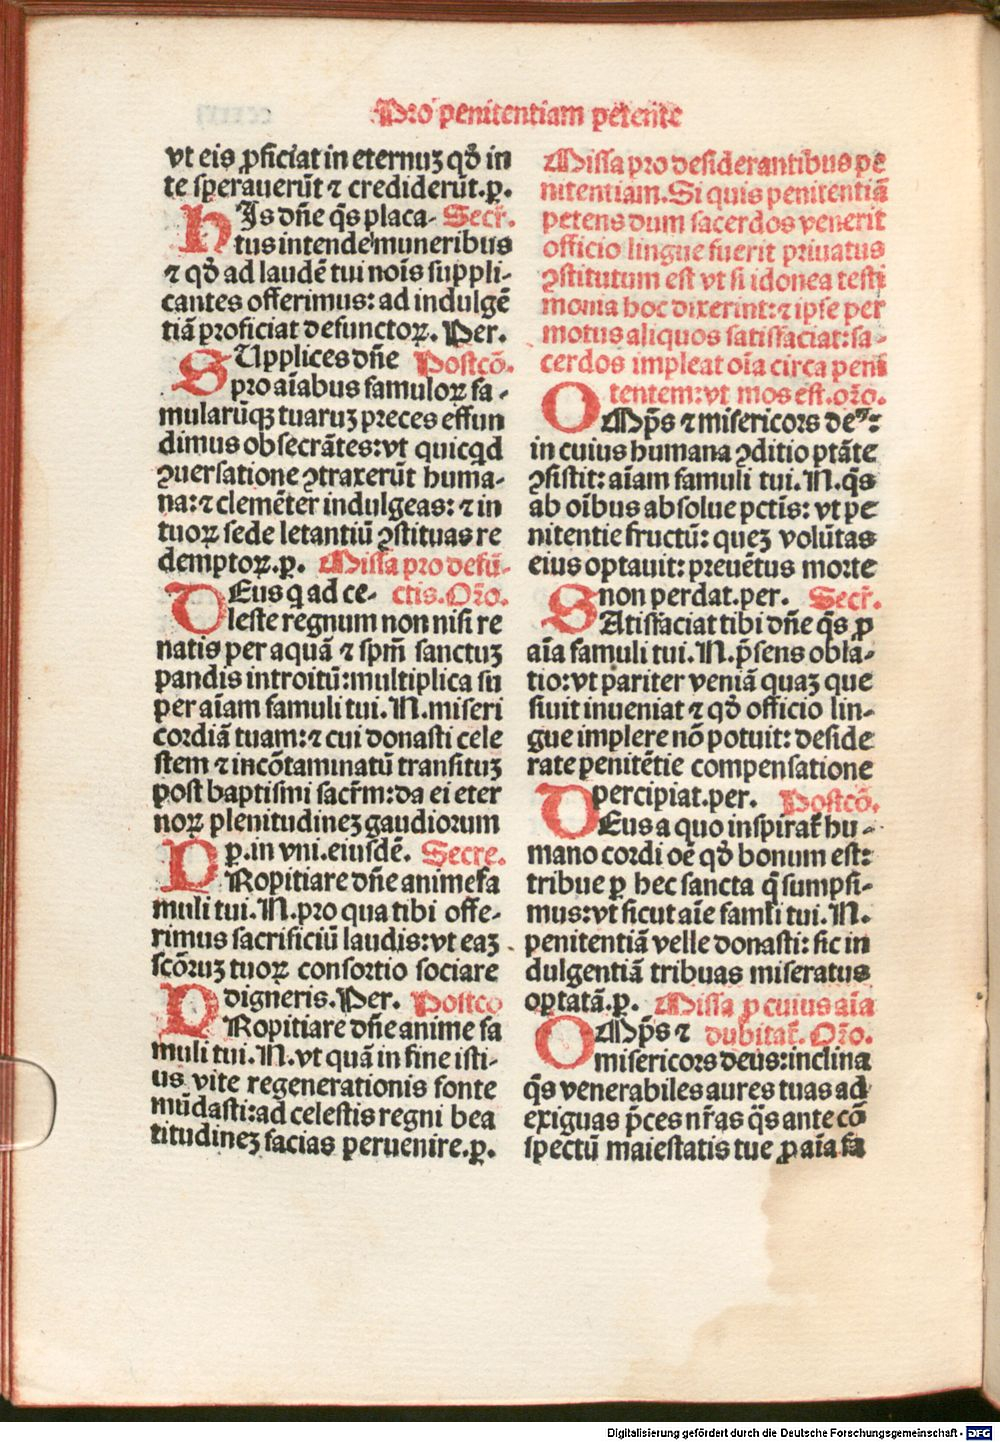 Pro penitentiam petente
vt eis ꝓficiat in eternuꝫ qď in
te sperauerūt ⁊ crediderūt.p.
HIs dn̄e q̄s placa- Secr̄.
tus intende muneribus
⁊ qď ad laudē tui nōis suppli-
cantes offerimus: ad indulgē
tiā proficiat defunctoꝝ. Per.
SUpplices dn̄e Postcō.
pro aīabus famuloꝝ fa-
mularūqꝫ tuaruꝫ preces effun
dimus obsecrātes: vt quicqd
ꝯuersatione ꝯtraxerūt huma-
na: ⁊ clemēter indulgeas: ⁊ in
tuoꝝ sede letantiū ꝯstituas re
demptoꝝ.p. Missa pro defū-
DEus q ad ce- ctis. Or̄o.
leste regnum non nisi re
natis per aquā ⁊ spm̄ sanctuꝫ
pandis introitū: multiplica su
per aīam famuli tui. N. miseri
cordiā tuam: ⁊ cui donasti cele
stem ⁊ incōtaminatū transituꝫ
post baptismi sacr̄m: da ei eter
noꝝ plenitudineꝫ gaudiorum
p. in vni. eiusdē. Secre.
PRopitiare dn̄e anime fa
muli tui. N. pro qua tibi offe-
rimus sacrificiū laudis: vt eaꝫ
scōruꝫ tuoꝝ consortio sociare
digneris. Per. Postco
PRopitiare dn̄e anime fa
muli tui. N. vt quā in fine isti-
us vite regenerationis fonte
mūdasti: ad celestis regni bea
titudineꝫ facias peruenire.p.
Missa pro desiderantibus pe
nitentiam. Si quis penitentiā
petens dum sacerdos venerit
officio lingue fuerit priuatus
ꝯstitutum est vt si idonea testi
monia hoc dixerint: ⁊ ipse per
motus aliquos satisfaciat: sa-
cerdos impleat oīa circa peni
tentem: vt mos est. or̄o.
OMp̄s ⁊ misericors deꝰ:
in cuius humana ꝯditio ptāte
ꝯsistit: aīam famuli tui. N. q̄s
ab oībus absolue pctīs: vt pe
nitentie fructū: queꝫ volūtas
eius optauit: preuētus morte
non perdat. per. Secr̄.
SAtisfaciat tibi dn̄e q̄s ꝓ
aīa famuli tui. N. p̄sens obla-
tio: vt pariter veniā quaꝫ que
siuit inueniat ⁊ qď officio lin-
gue implere nō potuit: deside
rate penitētie compensatione
percipiat. per. Postcō.
DEus a quo inspirat̄ hu-
mano cordi oē qď bonum est:
tribue ꝑ hec sancta q̄ sumpsi-
mus: vt sicut aīe famłi tui. N.
penitentiā velle donasti: sic in
dulgentiā tribuas miseratus
optatā.p. Missa ꝓ cuius aīa
OMp̄s ⁊ dubitat̄. Or̄o.
misericors deus: inclina
q̄s venerabiles aures tuas ad
exiguas p̄ces nr̄as q̄s ante cō
spectū maiestatis tue ꝓ aīa fa
Digitalisierung gefördert durch die Deutsche Forschungsgemeinschaft - DFG